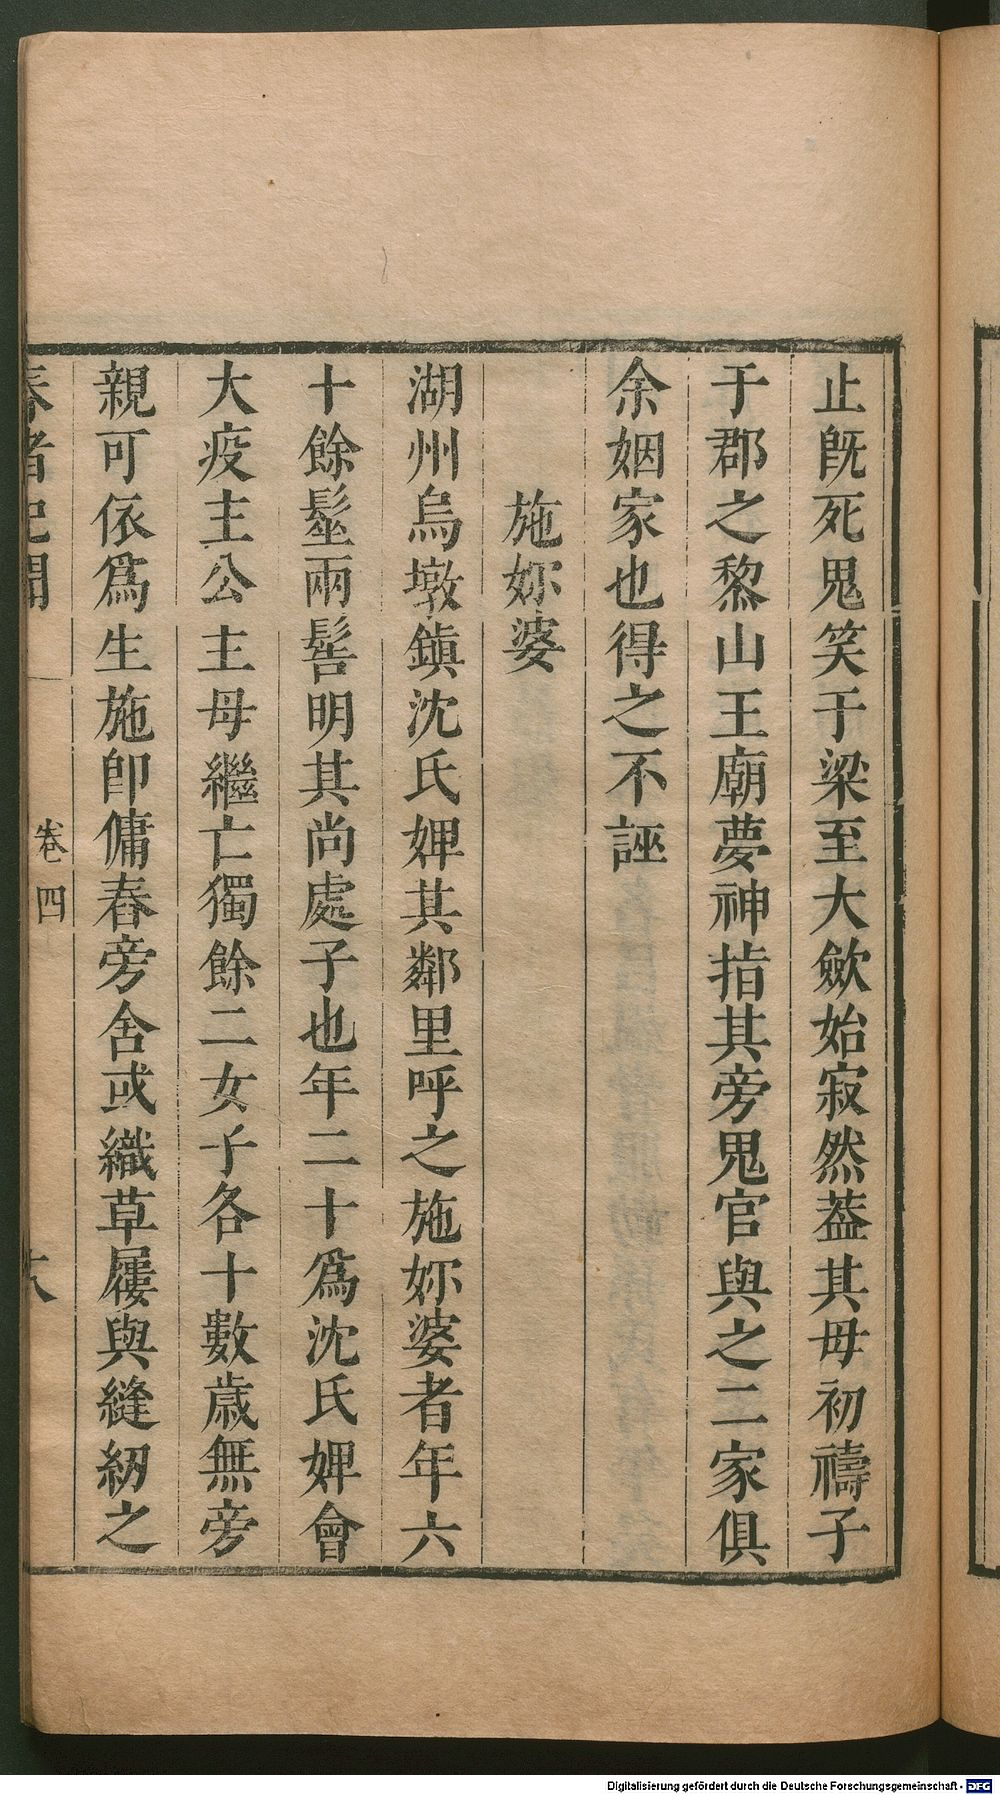 止旣死鬼笑于梁至大歛始寂然葢其母初禱子
于郡之黎山王廟夢神指其旁鬼官與之二家俱
余姻家也得之不誣
施妳婆
湖州烏墩鎭沈氏婢其鄰里呼之施妳婆者年六
十餘髽兩髻明其尚處子也年二十爲沈氏婢會
大疫主公主母繼亡獨餘二女子各十數歲無旁
親可依爲生施卽傭舂旁舍或織草屨與縫紉之
春渚紀聞
卷四
Digitalisierung gefördert durch die Deutsche Forschungsgemeinschaft - DFG